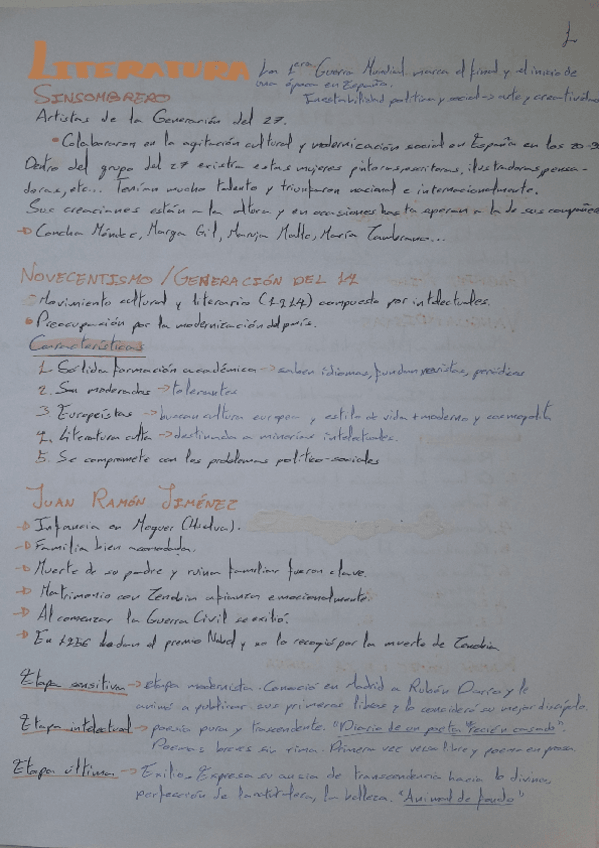 1
LITERATURA La 1era Guerra Mundial marca el final y el inicio de
una época en España.
SINSOMBRERO Inestabilidad política y social → arte y creatividad
Artistas de la Generación del 27.
• Colaboraron en la agitación cultural y modernización social en España en los 20-30
Dentro del grupo del 27 existían estas mujeres pintoras, escritoras, ilustradoras, pensa-
doras, etc... Tenían mucho talento y triunfaron nacional e internacionalmente.
Sus creaciones están a la altura y en ocasiones hasta superan a la de sus compañeros
→ Concha Méndez, Marga Gil, Maruja Mallo, María Zambrano...
NOVECENTISMO / GENERACIÓN DEL 14
- Movimiento cultural y literario (1914) compuesto por intelectuales.
• Preocupación por la modernización del país.
Características
1. Sólida formación académica → saben idiomas, fundan revistas, periódicos
2. Son moderados → tolerantes
3. Europeístas → buscan cultura europea y estilo de vida + moderno y cosmopolita
4. Literatura culta → destinada a minorías intelectuales.
5. Se compromete con los problemas político-sociales
JUAN RAMÓN JIMÉNEZ
→ Infancia en Moguer (Huelva).
→ Familia bien acomodada.
→ Muerte de su padre y ruina familiar fueron clave.
→ Matrimonio con Zenobia afianza emocionalmente.
→ Al comenzar la Guerra Civil se exilió.
→ En 1956 le dan el premio Nobel y no lo recogió por la muerte de Zenobia
Etapa sensitiva → etapa modernista. Conoció en Madrid a Rubén Darío y le
animó a publicar sus primeros libros y lo consideró su mejor discípulo.
Etapa intelectual → poesía pura y trascendente. "Diario de un poeta recién casado".
Poemas breves sin rima. Primera vez verso libre y poema en prosa
Etapa última → Exilio. Expresa su ansia de trascendencia hacia lo divino,
perfección de la naturaleza, la belleza. "Animal de fondo"